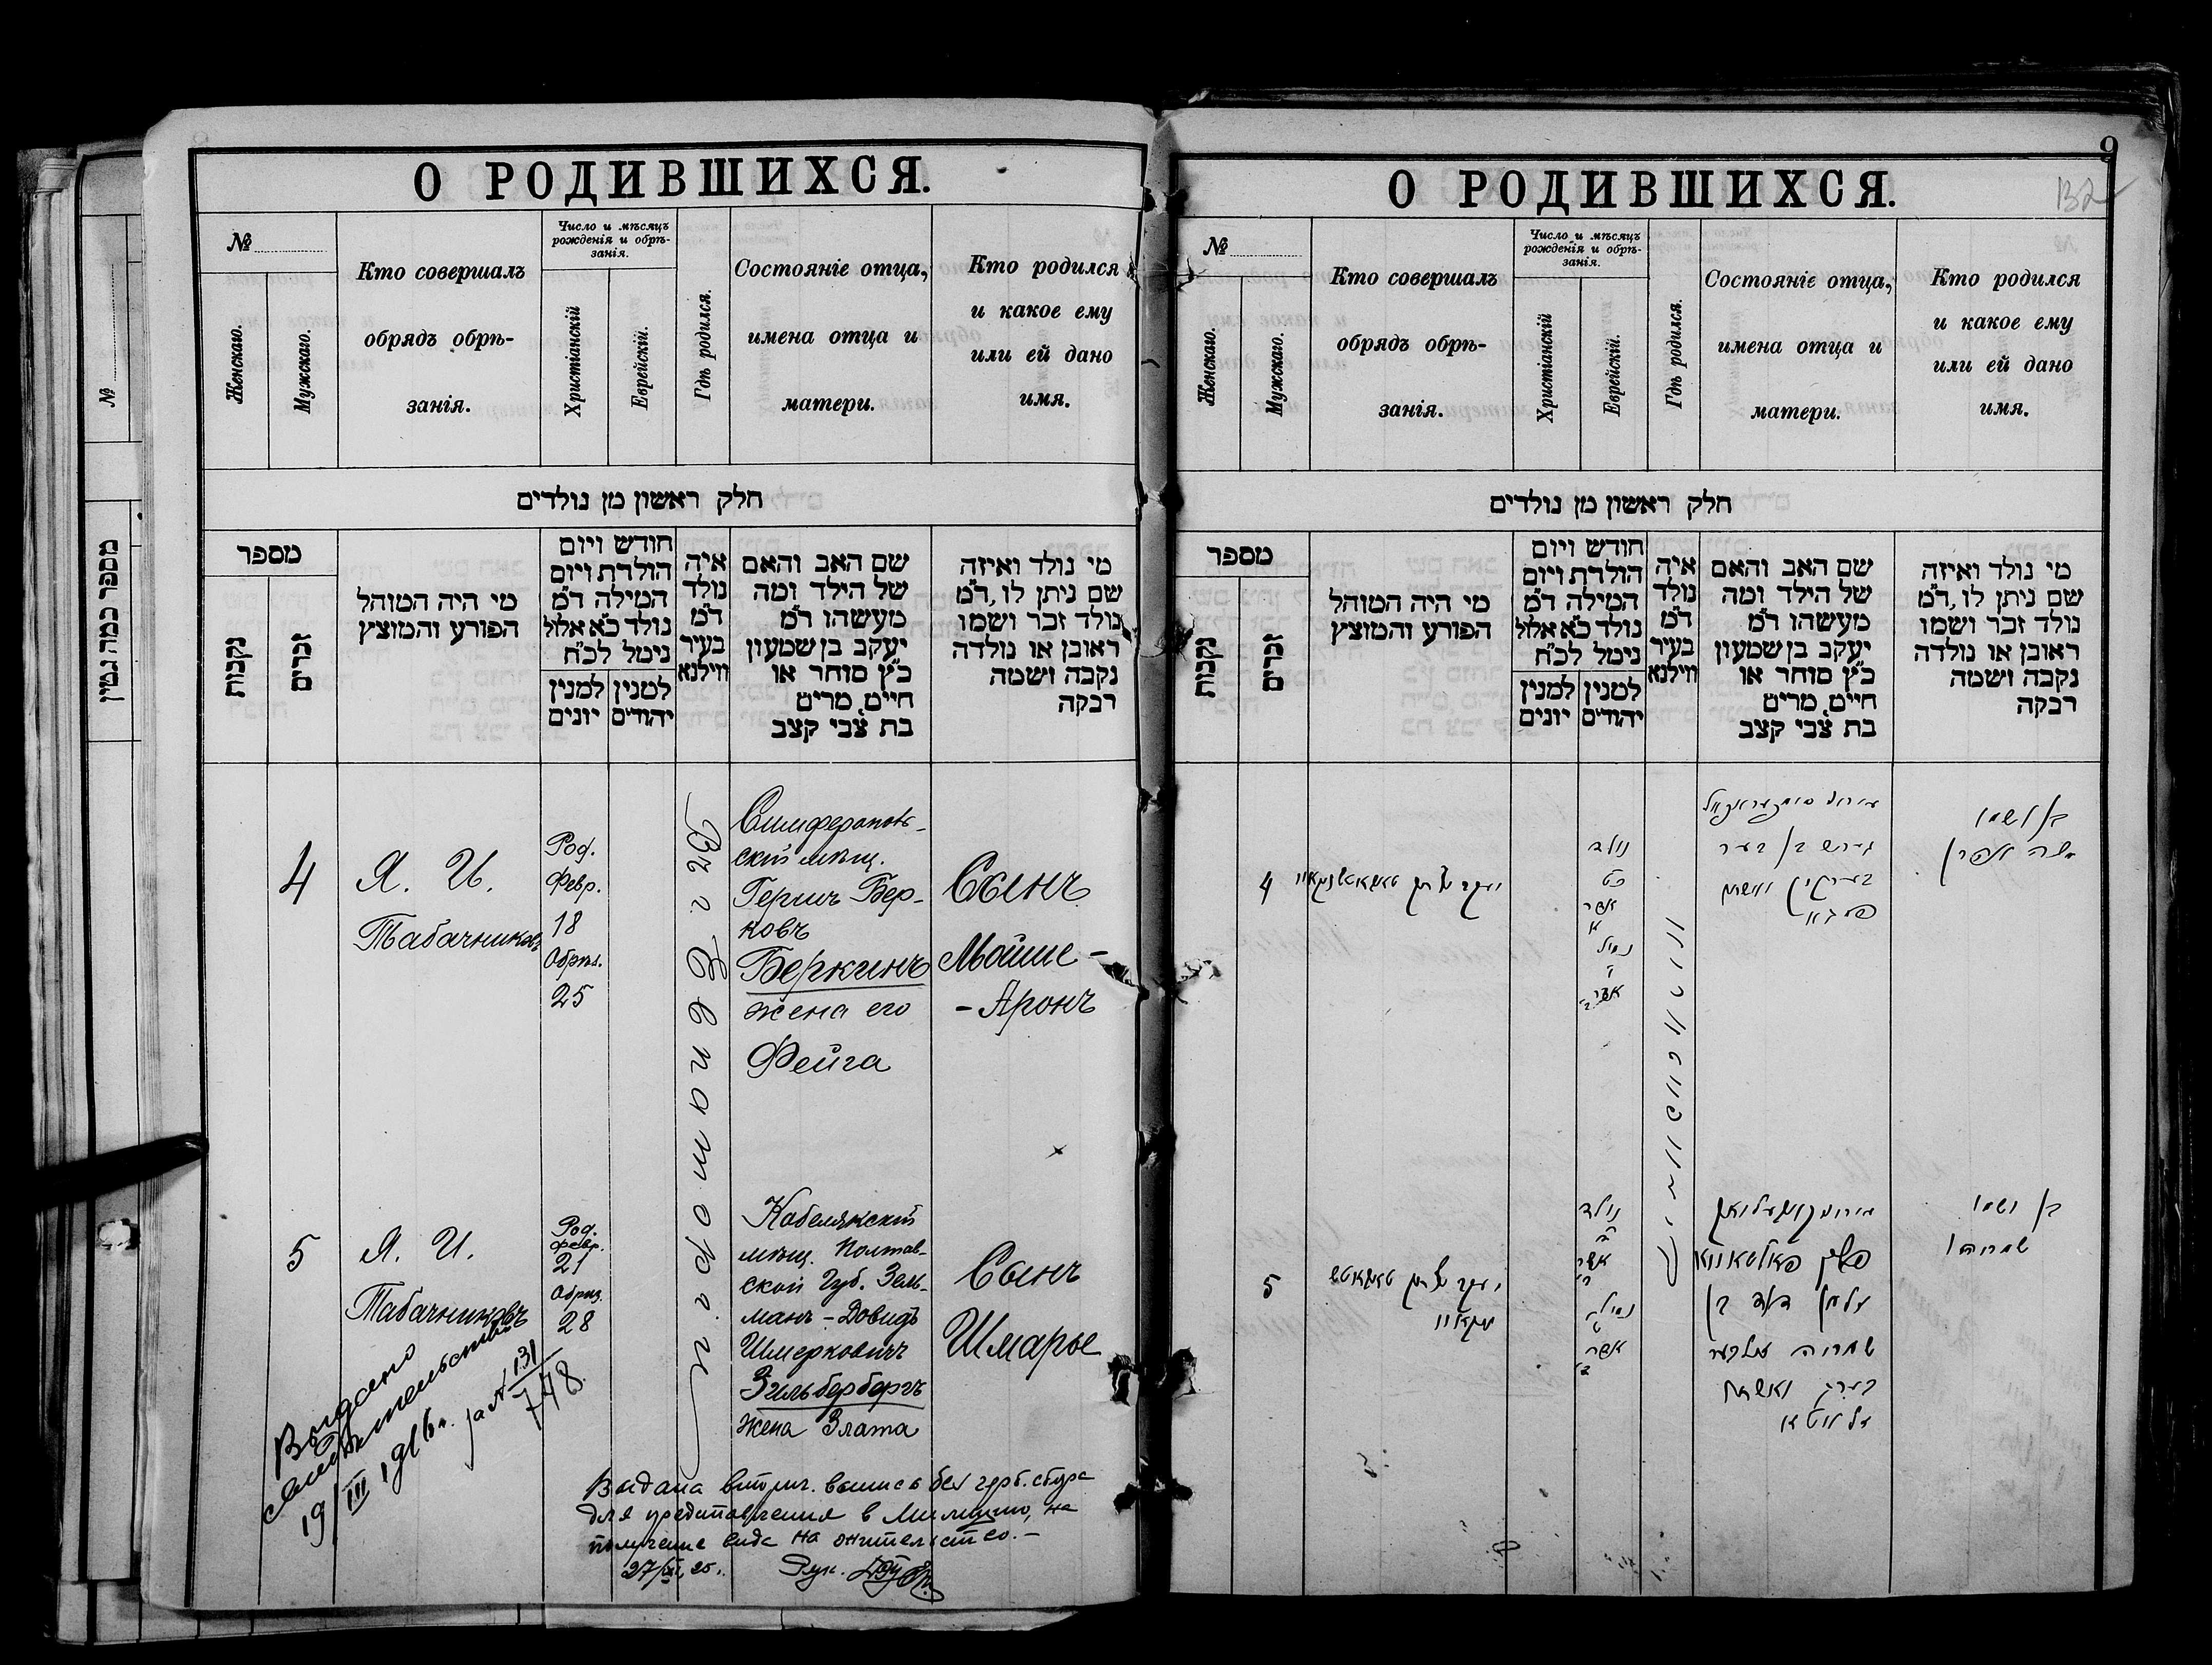 О РОДИВШИХСЯ.
№
Женскаго.
Мужскаго.
Кто совершалъ
обрядъ обрѣ-
занія.
Число и мѣсяцъ
рожденія и обрѣ-
занія.
Христіанскій
Еврейскій.
Гдѣ родился.
Состояніе отца,
имена отца и
матери.
Кто родился
и какое ему
или ей дано
имя.
חלק ראשון מן נולדים
מספר
נקבות
זכרים
מי היה המוהל
הפורע והמוצץ
חודש ויום
הולדת ויום
המילה ד״מ
נולד כ״א אלול
נימל לכ״ח
למנין יונים
למנין יהודים
איה
נולד
ד״מ
בעיר
ווילנא
שם האב והאם
של הילד ומה
מעשהו ד״מ
יעקב בן שמעון
כ״ץ סוחר או
חיים, מרים
בת צבי קצב
מי נולד ואיזה
שם ניתן לו, ד״מ
נולד זכר ושמו
ראובן או נולדה
נקבה ושמה
רבקה
4
Я. И.
Табачниковъ
Род.
Февр.
18
Обрѣз.
25
Въ г. Евпаторіи
Симферополь-
скій мѣщ.
Гершъ Бер-
ковъ
Беркинъ
жена его
Фейга
Сынъ
Мойше-
-Аронъ
5
Я. И.
Табачниковъ
Род.
Февр.
21
Обрѣз.
28
Кобелякскій
мѣщ. Полтав-
ской Губ. Зель-
манъ-Довидъ
Шмерковичъ
Зильбербергъ
жена Злата
Сынъ
Шмарье
Выдано
свидѣтельство
19/III 1916 г. за № 131
748
Выдана вторич. выпись без герб. сбора
для представления в Милицию, на
получение вида на жительство.-
О РОДИВШИХСЯ.
9
132
№
Женскаго.
Мужскаго.
Кто совершалъ
обрядъ обрѣ-
занія.
Число и мѣсяцъ
рожденія и обрѣ-
занія.
Христіанскій
Еврейскій.
Гдѣ родился.
Состояніе отца,
имена отца и
матери.
Кто родился
и какое ему
или ей дано
имя.
חלק ראשון מן נולדים
מספר
נקבות
זכרים
מי היה המוהל
הפורע והמוצץ
חודש ויום
הולדת ויום
המילה ד״מ
נולד כ״א אלול
נימל לכ״ח
למנין יונים
למנין יהודים
איה
נולד
ד״מ
בעיר
ווילנא
שם האב והאם
של הילד ומה
מעשהו ד״מ
יעקב בן שמעון
כ״ץ סוחר או
חיים, מרים
בת צבי קצב
מי נולד ואיזה
שם ניתן לו, ד״מ
נולד זכר ושמו
ראובן או נולדה
נקבה ושמה
רבקה
4
נולד
כט
אדר
א
נימול
ו
אדר ב
הירש בן בער
בערקין ואשתו
פייגא
בן ושמו
משה אהרן
5
נולד
ב
אדר
ב
נימול
ט
אדר
ב
פלך פאלטאווא
זלמן דוד בן
שמריה זילבער
בערג ואשתו
זלאטא
בן ושמו
שמריהו